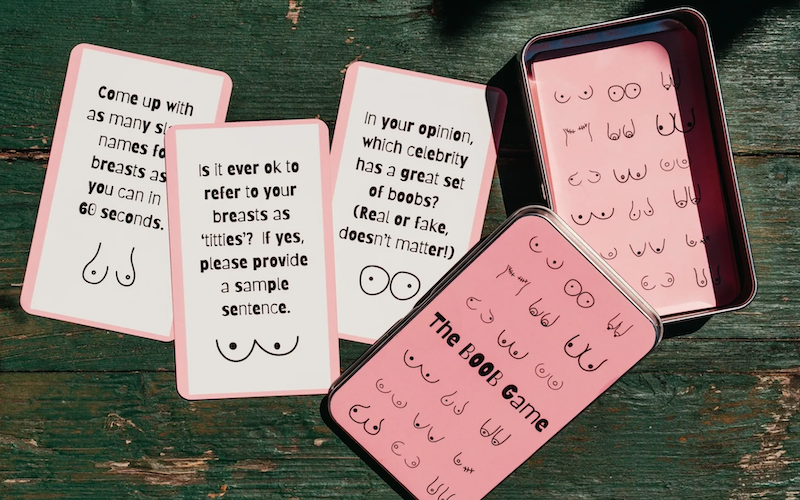 Come up with
as many
names
breasts as
you can in
60 seconds.
Is it ever ok to
refer to your
breasts as
'titties'? If yes,
please provide
a sample
sentence.
In your opinion,
which celebrity
has a great set
of boobs?
(Real or fake,
doesn't matter!)
The BOOB Game